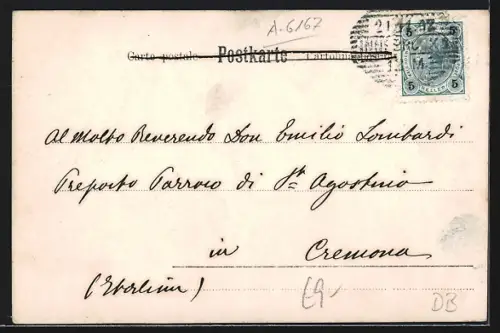 A-6167
Carte postale Postkarte Cartolina
21
5 5
HELLER
5 5
Al Molto Reverendo Don Emilio Lombardi
Preposto Parroco di St. Agostino
in Cremona
E9.-
DB